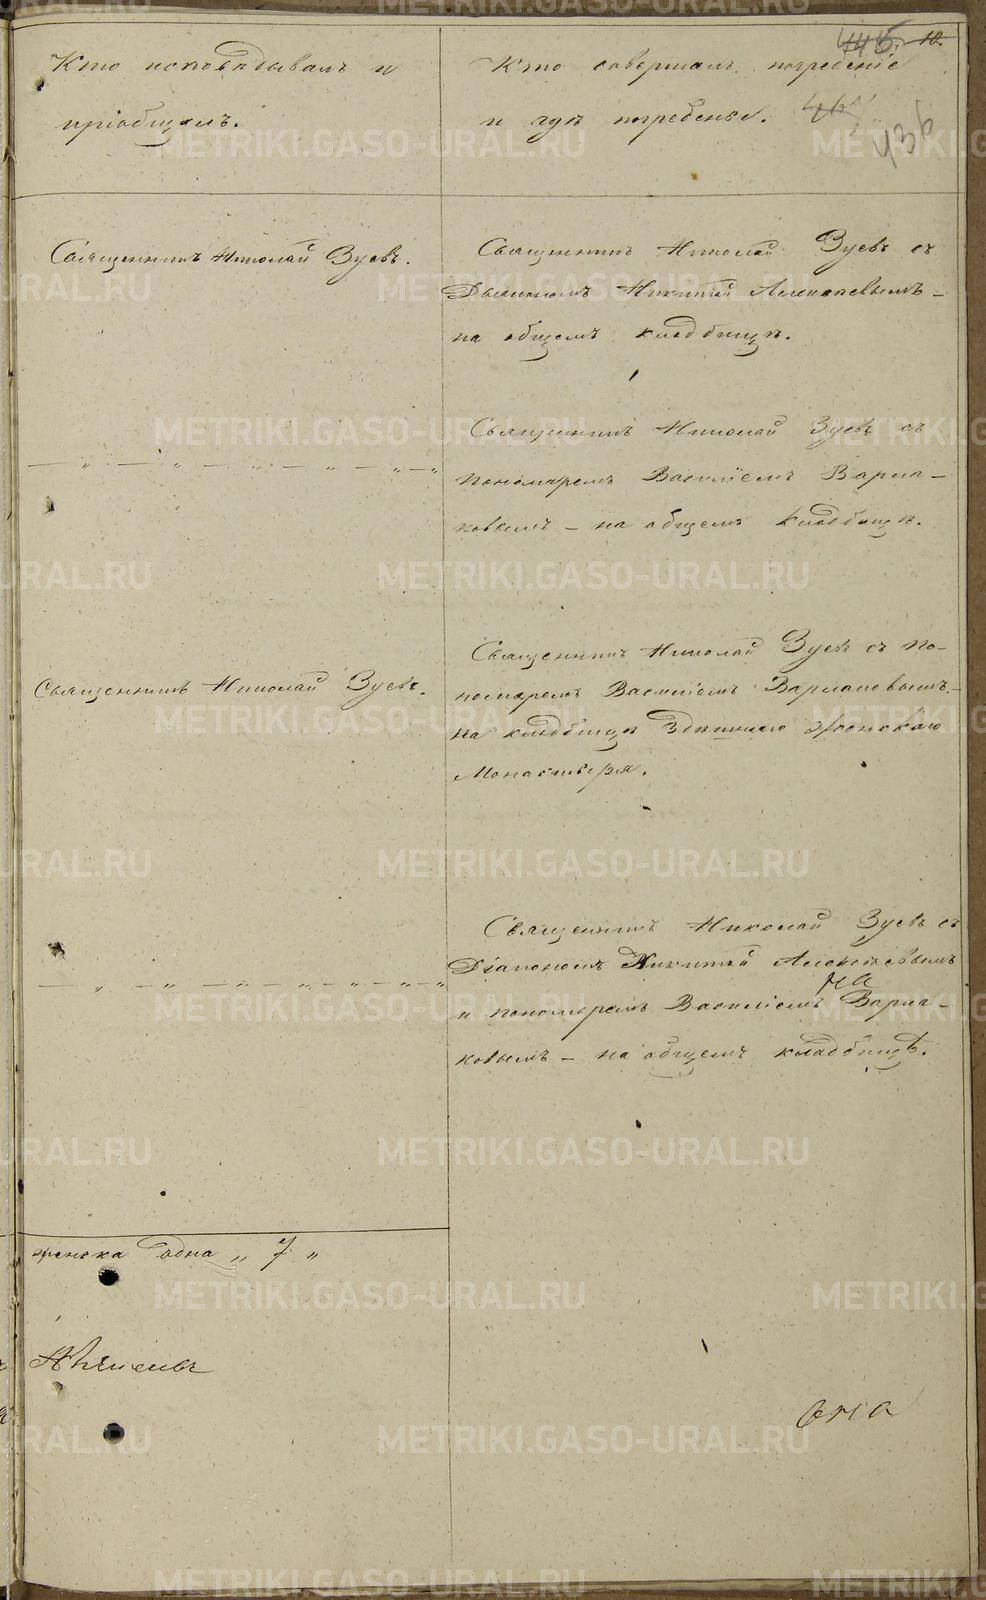 10.
436
Кто исповѣдывалъ и
пріобщалъ.
Кто совершалъ погребеніе
и гдѣ погребены.
Священникъ Николай Зуевъ.
Священникъ Николай Зуевъ съ
Діакономъ Никитой Алексѣевымъ –
на общемъ кладбищѣ.
— „ — „ — „ — „ — „ —
Священникъ Николай Зуевъ съ
пономаремъ Василіемъ Варла-
ковымъ – на общемъ кладбищѣ.
Священникъ Николай Зуевъ.
Священникъ Николай Зуевъ съ по-
номаремъ Василіемъ Варлаковымъ –
на кладбищѣ Здѣшняго Женскаго
Монастыря.
— „ — „ — „ — „ — „ —
Священникъ Николай Зуевъ съ
Діакономъ Никитой Алексѣевымъ
и пономаремъ Василіемъ Варла-
ковымъ – на общемъ кладбищѣ.
женска одна „ 1 „
METRIKI.GASO-URAL.RU